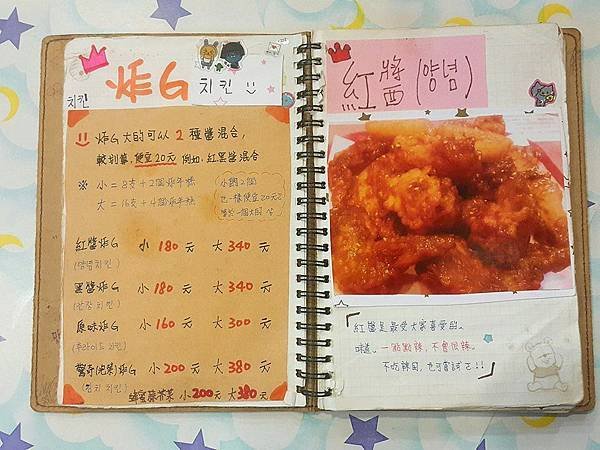 炸G 치킨
치킨
炸G大的可以 2 種醬混合,
較划算,便宜20元 例如:紅黑醬混合
※ 小=8支+2個炸年糕
大=16支+4個炸年糕
小的2個
也一樣便宜20元
紅醬炸G 小 180 元 大 340 元
(양념치킨)
黑醬炸G 小 180 元 大 340 元
(간장치킨)
原味炸G 小 160 元 大 300 元
(후라이드 치킨)
小 200 元 大 380 元
蜂蜜芥茉 小 200 元 大 380 元
紅醬 (양념)
紅醬是最受大家喜愛的。
味道。一點點辣,不會很辣。
不吃辣的,也可嘗試ㄛ!!